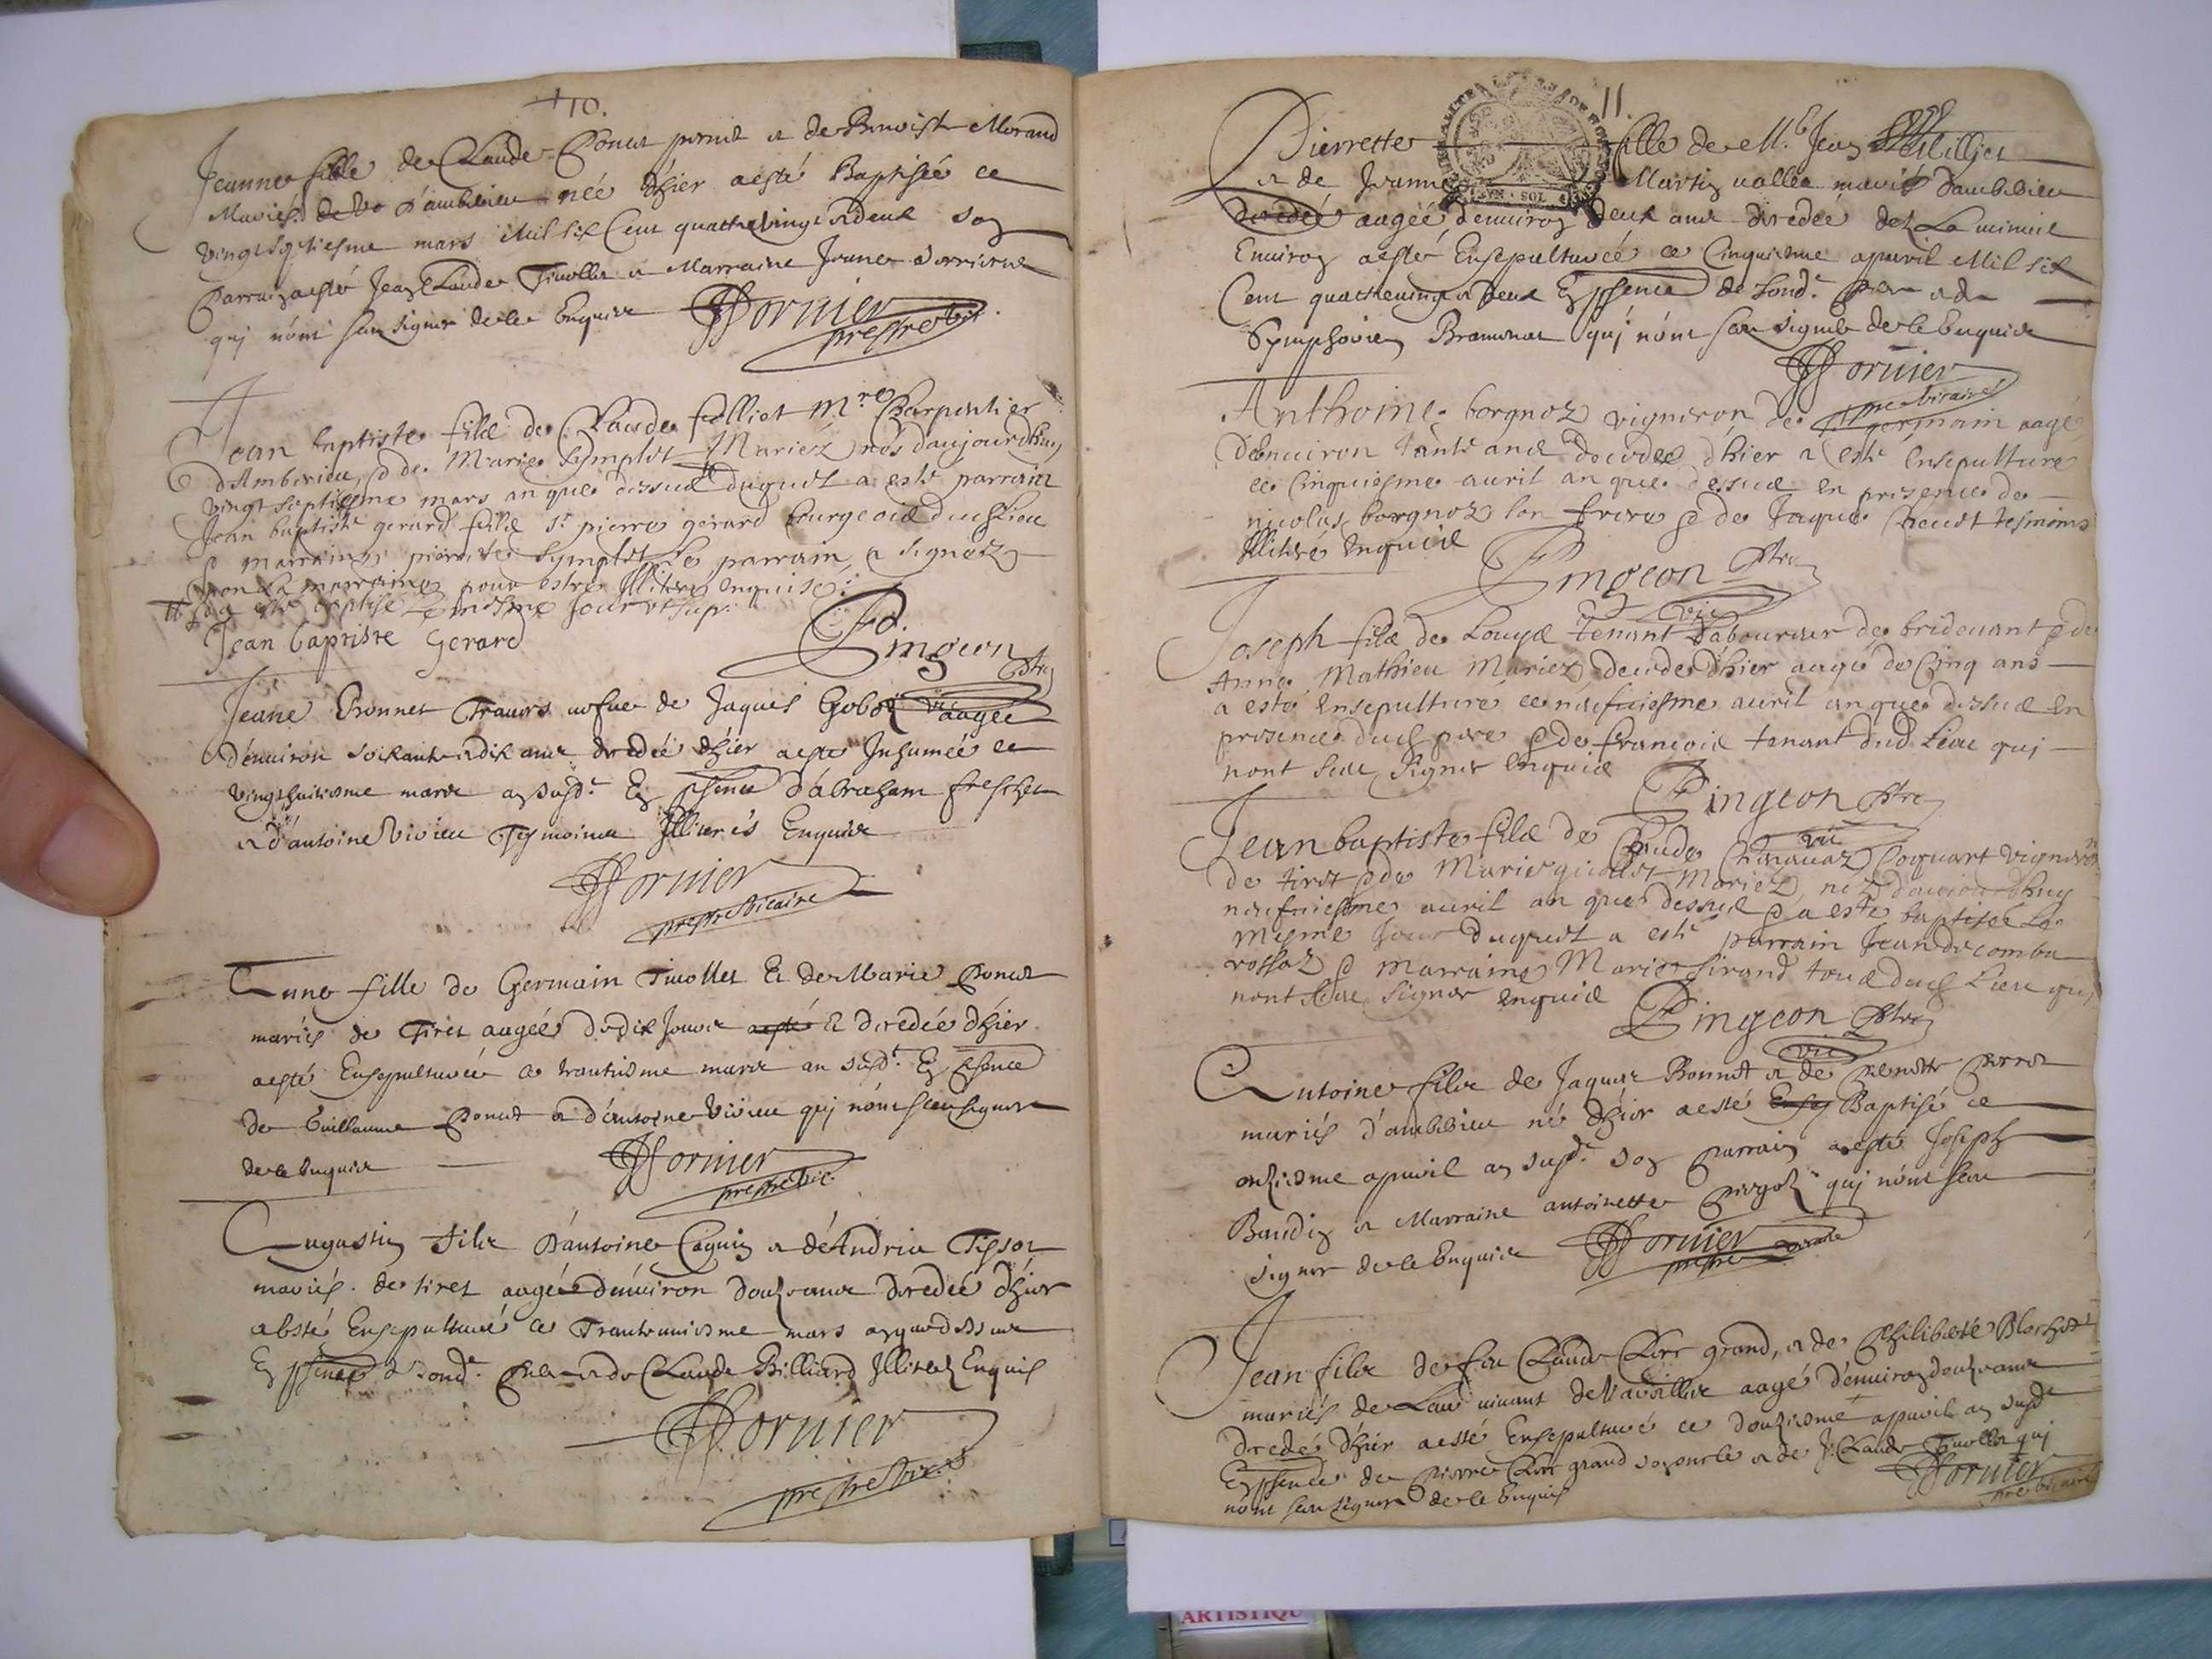 10.
Jeanne fille de Claude Ponct permit et de Benoiste Morand
Mariés de Vo d'ambérieu née d'hier a esté Baptisée ce
vingt septiesme mars Mil six Cent quattrevingt et deux son
Parrain a esté Jean Claude Tivollet et Marraine Jeane
qui n'ont sceu signer de ce Enquis
Fornier
prestre vic.
Jean baptiste filz de Claude folliet Mre Charpentier
d'Amberieu, & de Marie Symplot Mariez nés daujourdhuy
vingt septiesme mars an que dessus duquel a esté parrain
Jean baptiste gerard filz sr pierre gerard bourgeois dud Lieu
& marraine pierrette Symplot Le parrain a signez
non La marraine pour estre Illitere enquise.
& a esté baptisé Le mesme Jour ut sup.
Jean baptiste Gerard
Pingeon
ptre
vi
Jeane Bonnet Travers vefue de Jaques Goboz aagée
d'enuiron soixante et dix ans decedée d'hier a esté Inhumée ce
vingthuitiesme mars an susd. En psence d'abraham freschet
et d'antoine Vivieu Tesmoins Illiterés Enquis
Fornier
prestre vicaire
Anne fille de Germain Tivollet Et de Marie Ponct
mariés de Tiret aagée de dix Jours a esté Et decedée d'hier
a esté Ensepulturée ce trentiesme mars an susd. En psence
de Guillaume Ponct et d'antoine Vivieu qui n'ont sceu signer
de ce Enquis
Fornier
prestre vic.
Augustin filz d'antoine Cagnin et d'Andrea Tissot
mariés de tiret aagé d'enuiron douze ans decedé d'hier
a esté Ensepulturé ce Trente uniesme mars an que dessus
En psence de sond. Pere et de Claude Billiard Illiterez Enquis
Fornier
prestre vic.
11.
Pierrette fille de M. Jean Milliet
et de Jeanne Martin vallet mariés d'ambérieu
decedée aagée d'enuiron deux ans decedée dez La minuit
Enuiron a esté Ensepulturée ce Cinquiesme apuril Mil six
Cent quattrevingt et deux En psence de sond. Pere et de
Symphorien Bramenat qui n'ont sceu signé de ce Enquis
Fornier
pre vicaire
Anthoine borgnoz vigneron de St germain aagé
denuiron trante ans decedez d'hier a esté Ensepulturé
ce Cinquiesme auril an que dessus en presence de
nicolas borgnoz son frere & de Jaque tesmoins
Illiterés Enquis
Pingeon ptre
vic
Joseph filz de Louys tenant Labourier de bridevant & de
Anne Mathieu Mariez decede d'hier aagé de Cinq ans
a esté Ensepulturé ce neufuiesme auril an que dessus En
presence dud pere & de françois tenant dud Lieu qui
nont sceu Signer Enquis
Pingeon ptre
vic
Jean baptiste filz de Claude Charavaz Coquart vigneron
de tiret & de Marie Mariez, nez daujourdhuy
neufuiesme auril an que dessus & a esté baptisé Le
mesme Jour duquel a esté parrain Jean decombe
rossaz & marraine Marie Sirand tous dud Lieu qui
nont sceu Signer Enquis
Pingeon ptre
vic
Antoine filz de Jaques Bonnet et de Pernette Perrot
mariés d'ambérieu né d'hier a esté Ensep Baptisé ce
onziesme apuril an susd. son Parrain a esté Joseph
Baudin et Marraine antoinette qui n'ont sceu
signer de ce Enquis
Fornier
prestre vicaire
Jean filz de feu Claude Clerc grand, et de Philiberte Blochet
mariés de Leur vivant de Vavillie aagé d'enuiron douze ans
decedé d'hier a esté Ensepulturé ce douziesme apuril an susd
En psence de Pierre Clerc grand son oncle et de J. Claude Tivollet qui
n'ont sceu signer de ce Enquis
Fornier
pre vicaire
ARTISTIQU